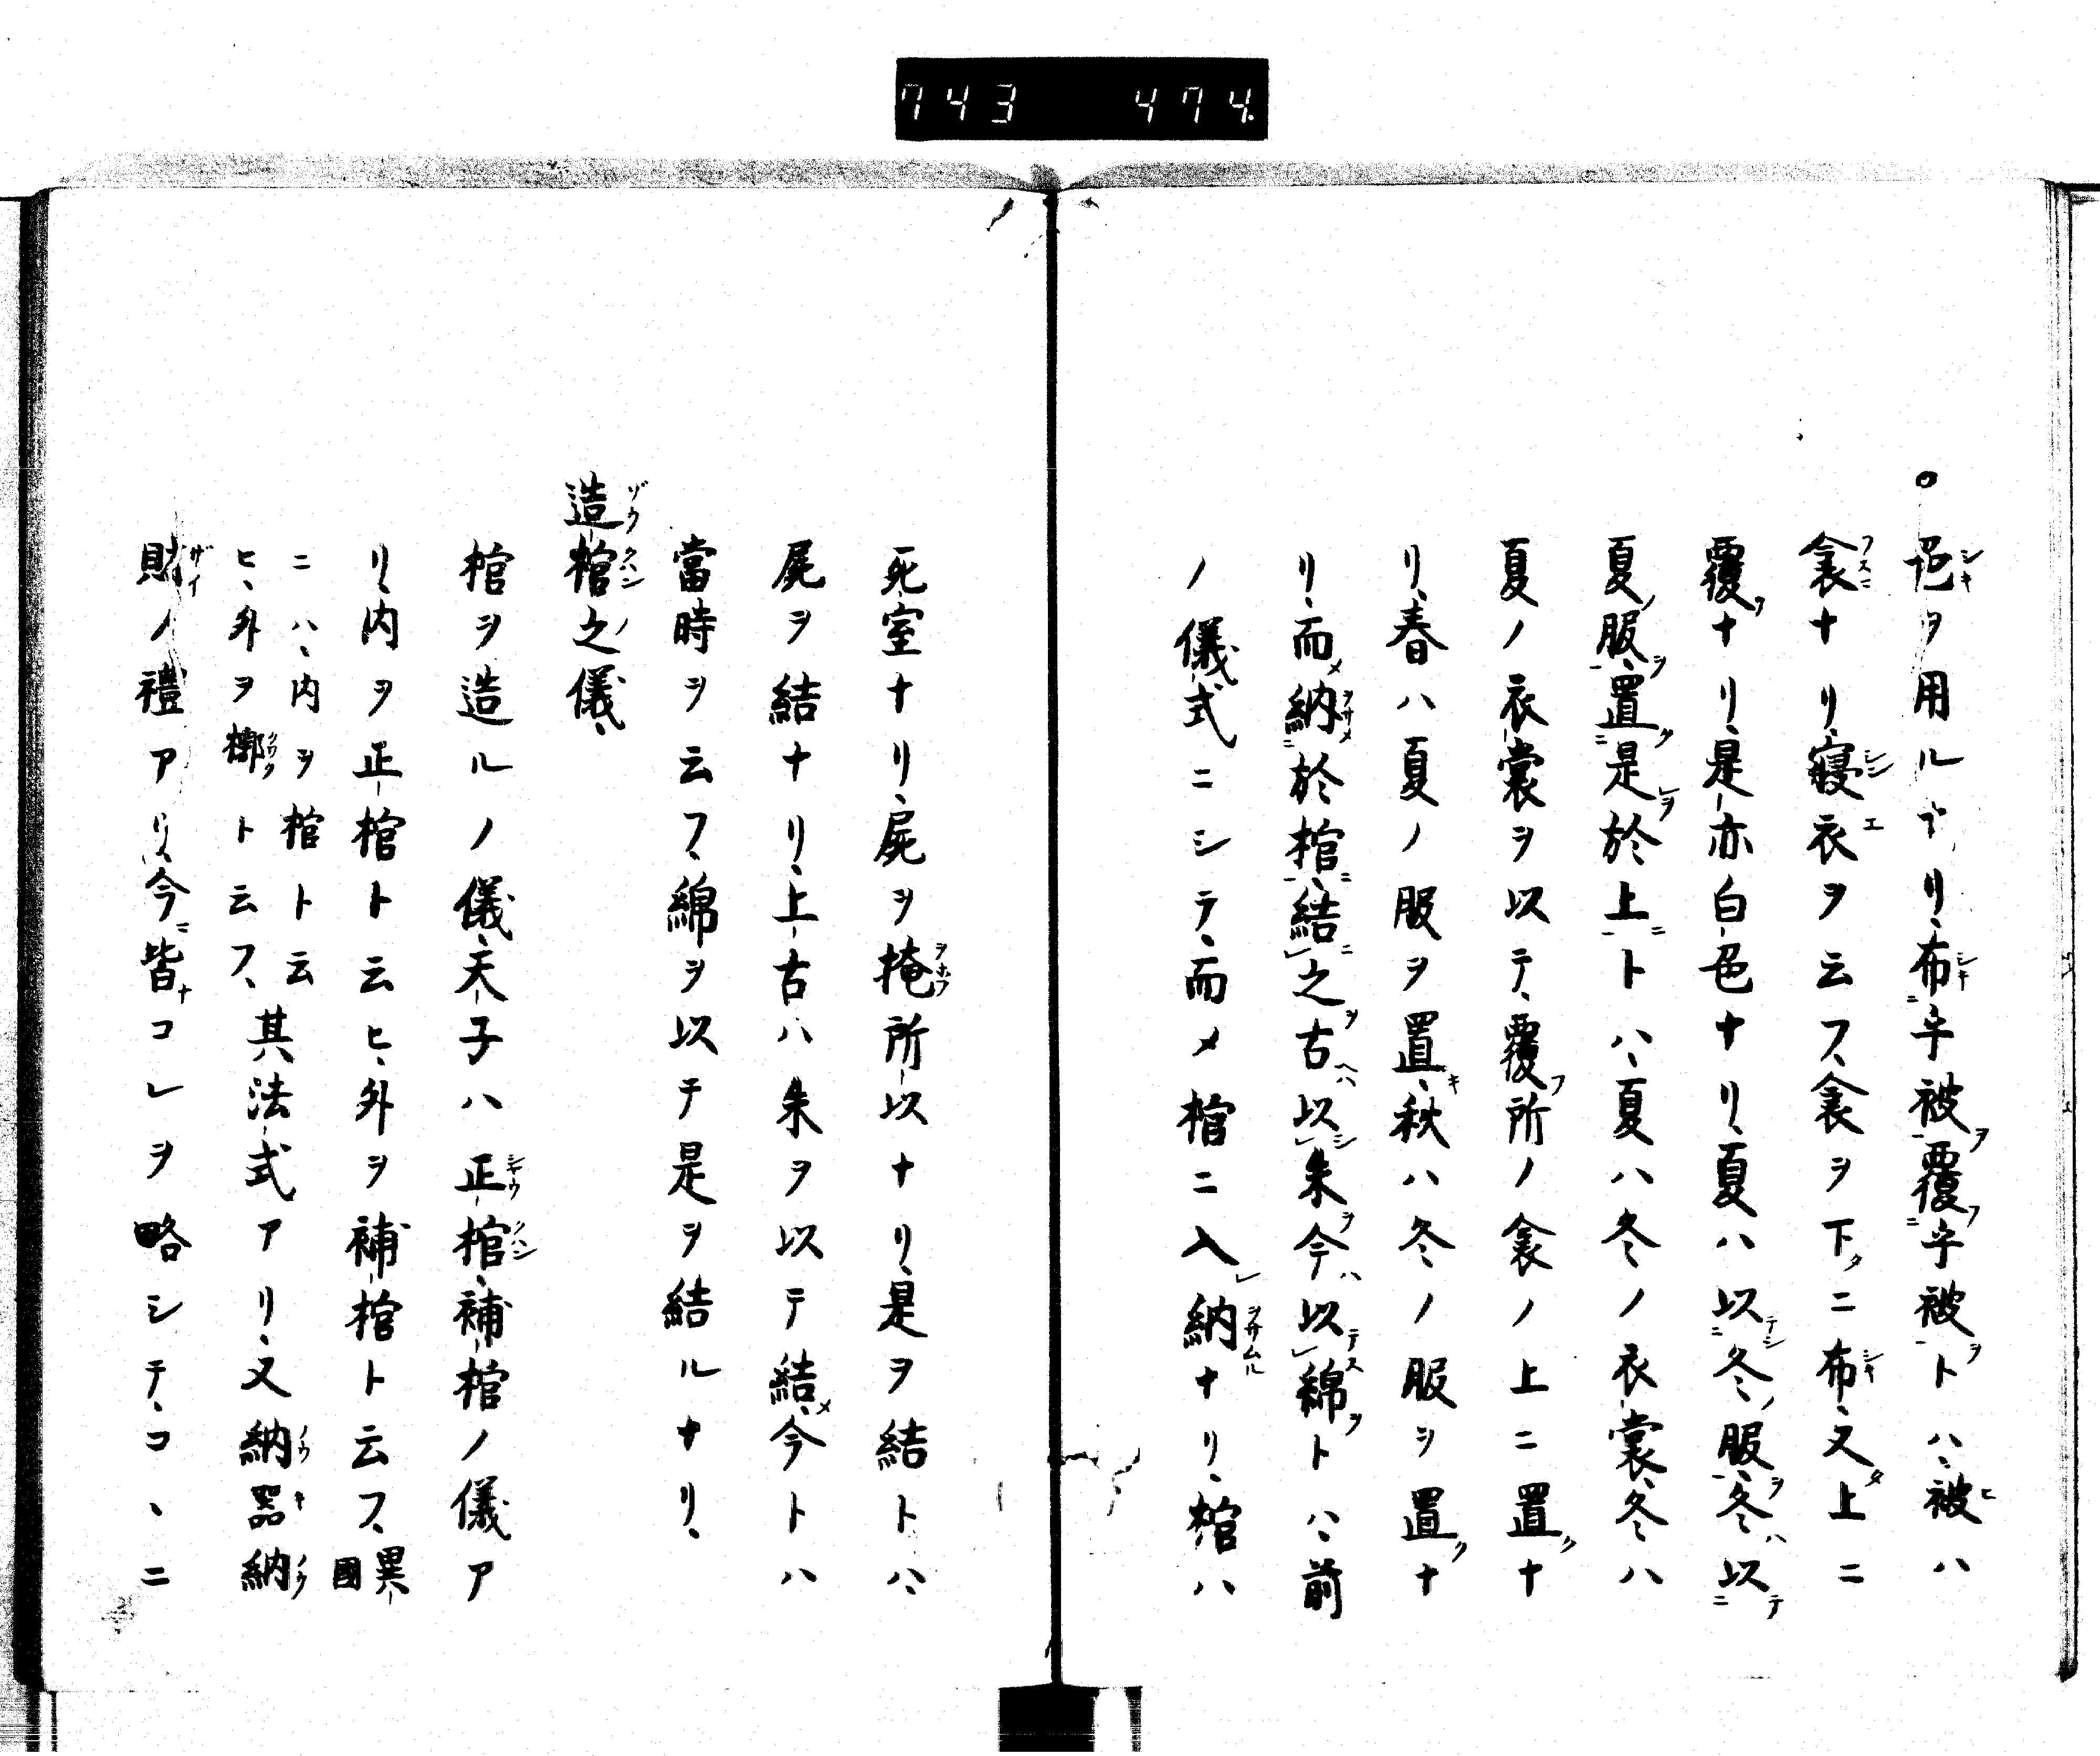 743 474.
色ヲ用ルナリ、布乎被覆乎被トハ、被ハ
衾ナリ、寝衣ヲ云フ、衾ヲ下ニ布、又上ニ
覆ナリ、是亦白色ナリ、夏ハ以冬服、冬ハ以
夏服、置是於上トハ、夏ハ冬ノ衣裳、冬ハ
夏ノ衣裳ヲ以テ、覆フ所ノ衾ノ上ニ置ナ
リ、春ハ夏ノ服ヲ置、秋ハ冬ノ服ヲ置ナ
リ、而納於棺、結之古以朱今以綿トハ、前
ノ儀式ニシテ、而メ棺ニ入納ナリ、棺ハ
死室ナリ、屍ヲ掩所以ナリ、是ヲ結トハ、
屍ヲ結ナリ、上古ハ朱ヲ以テ結、今トハ
當時ヲ云フ、綿ヲ以テ是ヲ結ルナリ、
造棺之儀、
棺ヲ造ルノ儀、天子ハ正棺、補棺ノ儀ア
リ、内ヲ正棺ト云ヒ、外ヲ補棺ト云フ、異國
ニハ、内ヲ棺ト云
ヒ、外ヲ槨ト云フ、其法式アリ、又納器納
財ノ禮アリ、今皆コレヲ略シテ、コヽニ